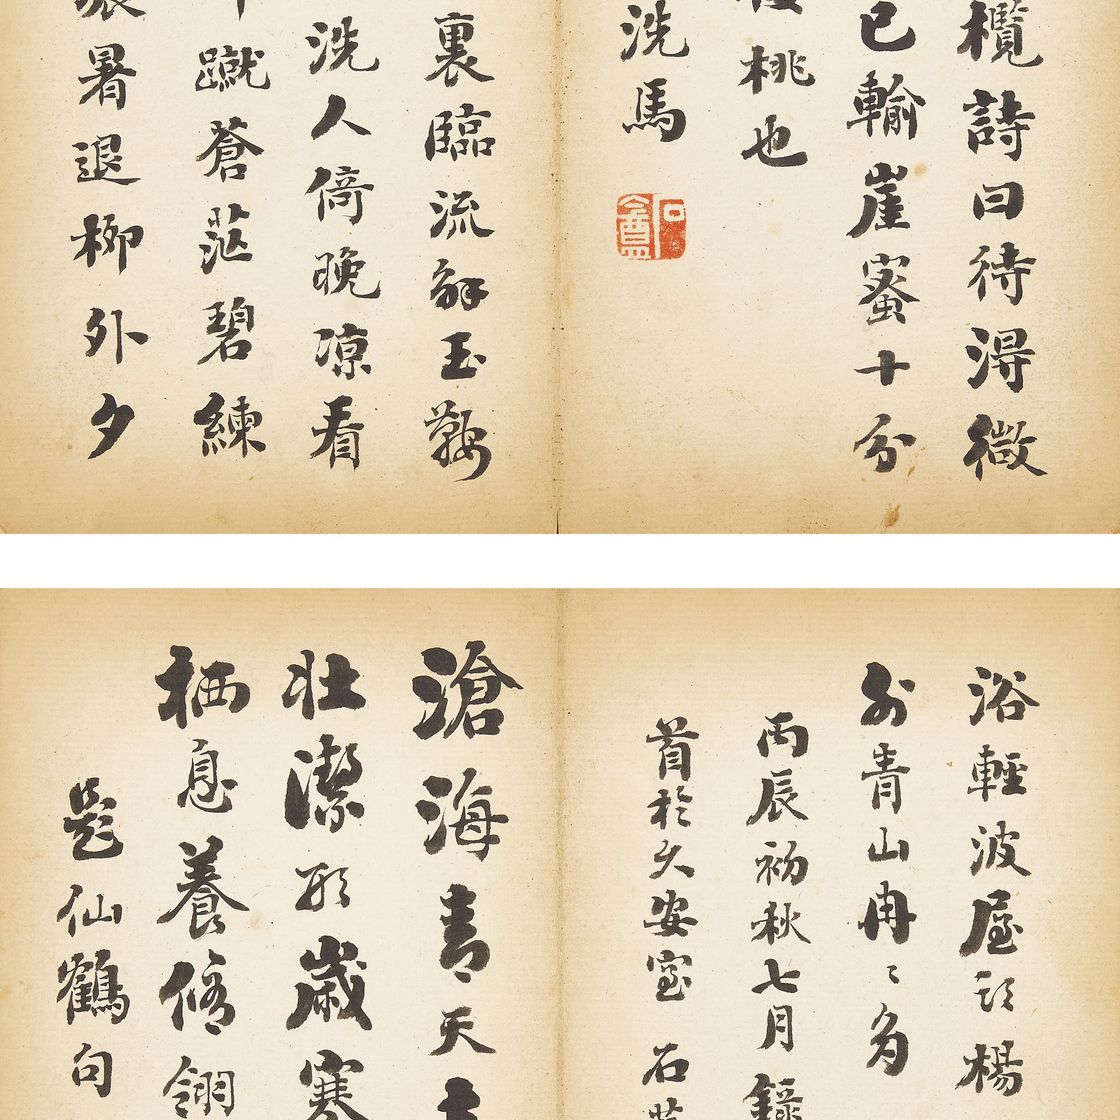 欖詩曰待得微
已輸崖蜜十分
桃也
洗馬
裏臨流解玉鞍
洗人倚晚凉看
蹴蒼茫碧練
暑退柳外夕
浴輕波屋頭楊
外青山冉〻多
丙辰初秋七月錄
首於久安室 石
滄海青天
壯潔形歲寒
栖息養脩翎
題仙鶴句